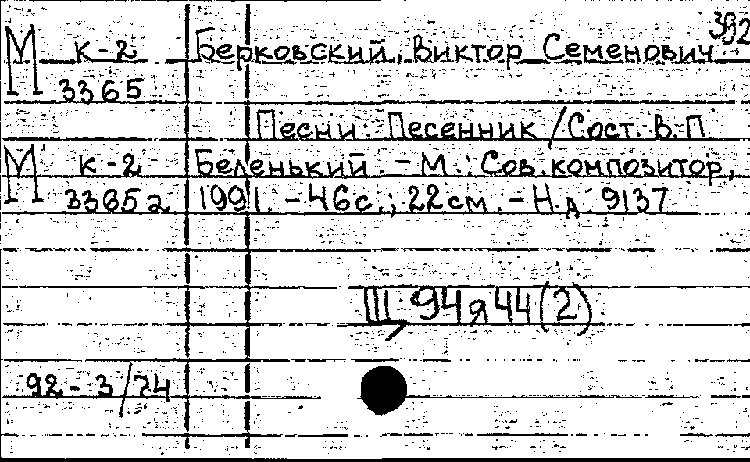 392
М к-2 Берковский, Виктор Семенович.
3365
Песни: Песенник / Сост. В.П.
М к-2 Беленький. - М.: Сов. композитор,
3365а 1991. - 46с.; 22см. - Н.д. 9137
Щ 94я44(2)
92-3/74